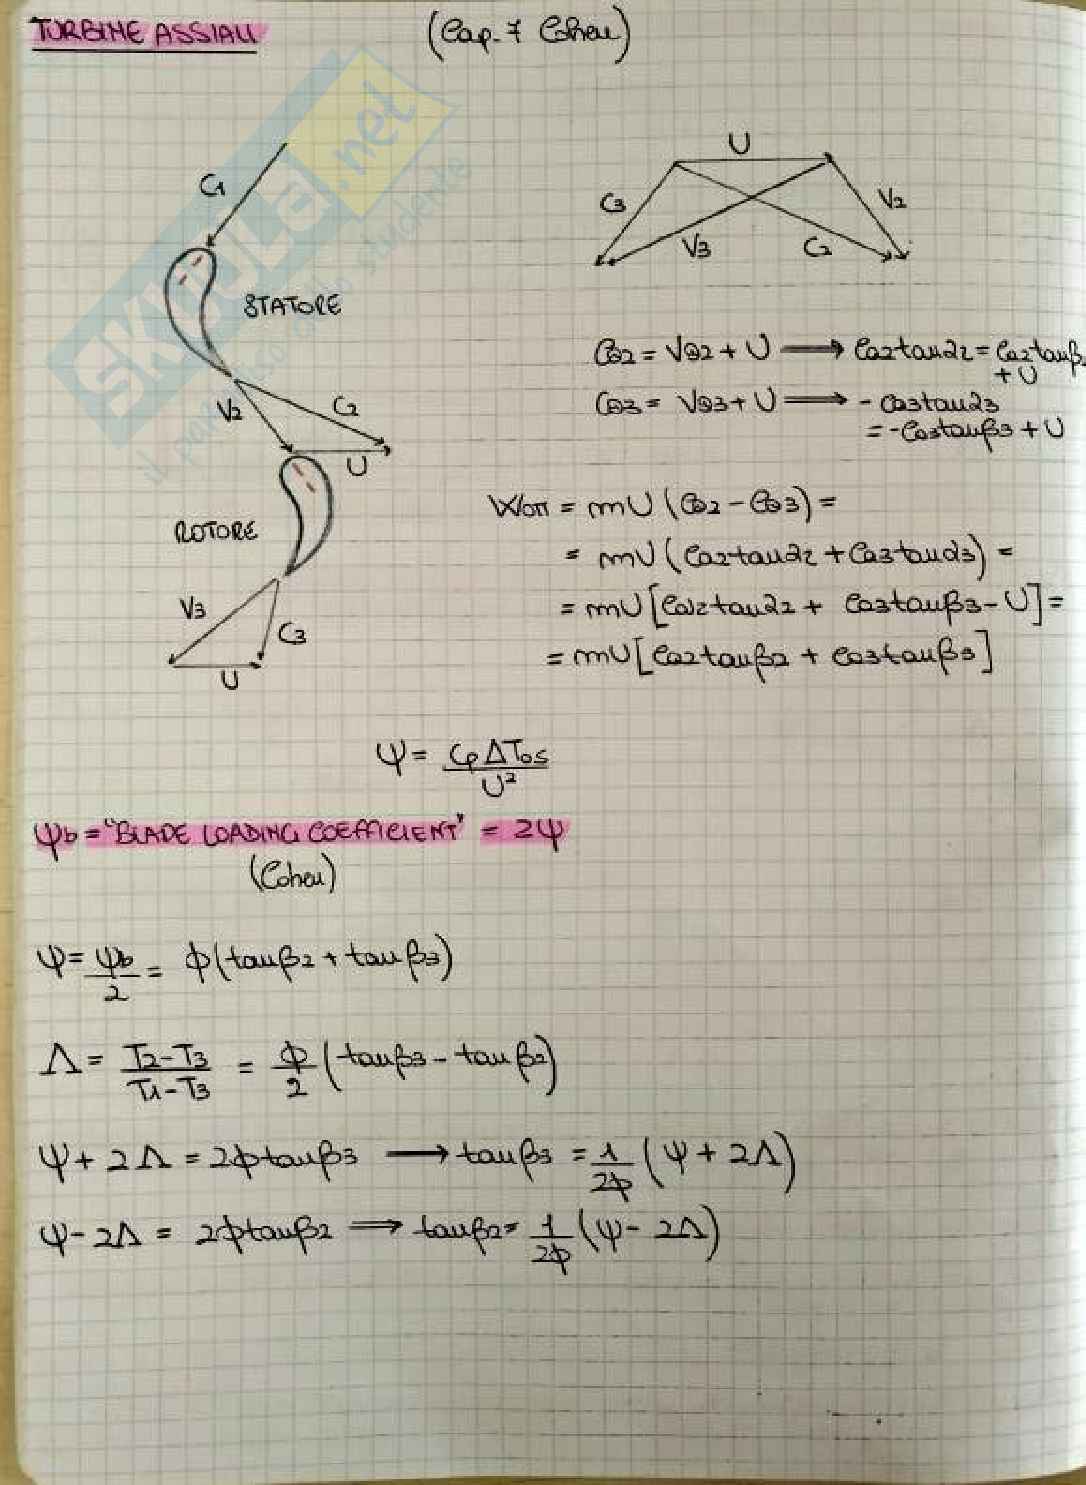 TURBINE ASSIALI (Cap. 7 Cohen)
C1
STATORE
V2 C2
U
ROTORE
V3 C3
U
U
C3 V3 C2 V2
Cθ2 = Vθ2 + U ⟶ Ca2tanα2 = Ca2tanβ2 + U
Cθ3 = Vθ3 + U ⟶ - Ca3tanα3
= -Ca3tanβ3 + U
Wott = mU (Cθ2 - Cθ3) =
= mU (Ca2tanα2 + Ca3tanα3) =
= mU [Ca2tanα2 + Ca3tanβ3 - U] =
= mU [Ca2tanβ2 + Ca3tanβ3]
ψ = Cp ΔTos / U²
ψb = "BLADE LOADING COEFFICIENT" = 2ψ
(Cohen)
ψ = ψb / 2 = ϕ (tanβ2 + tanβ3)
Λ = T2 - T3 / T1 - T3 = ϕ / 2 (tanβ3 - tanβ2)
ψ + 2Λ = 2ϕtanβ3 ⟶ tanβ3 = 1 / 2ϕ (ψ + 2Λ)
ψ - 2Λ = 2ϕtanβ2 ⟶ tanβ2 = 1 / 2ϕ (ψ - 2Λ)
SKUOLA.net